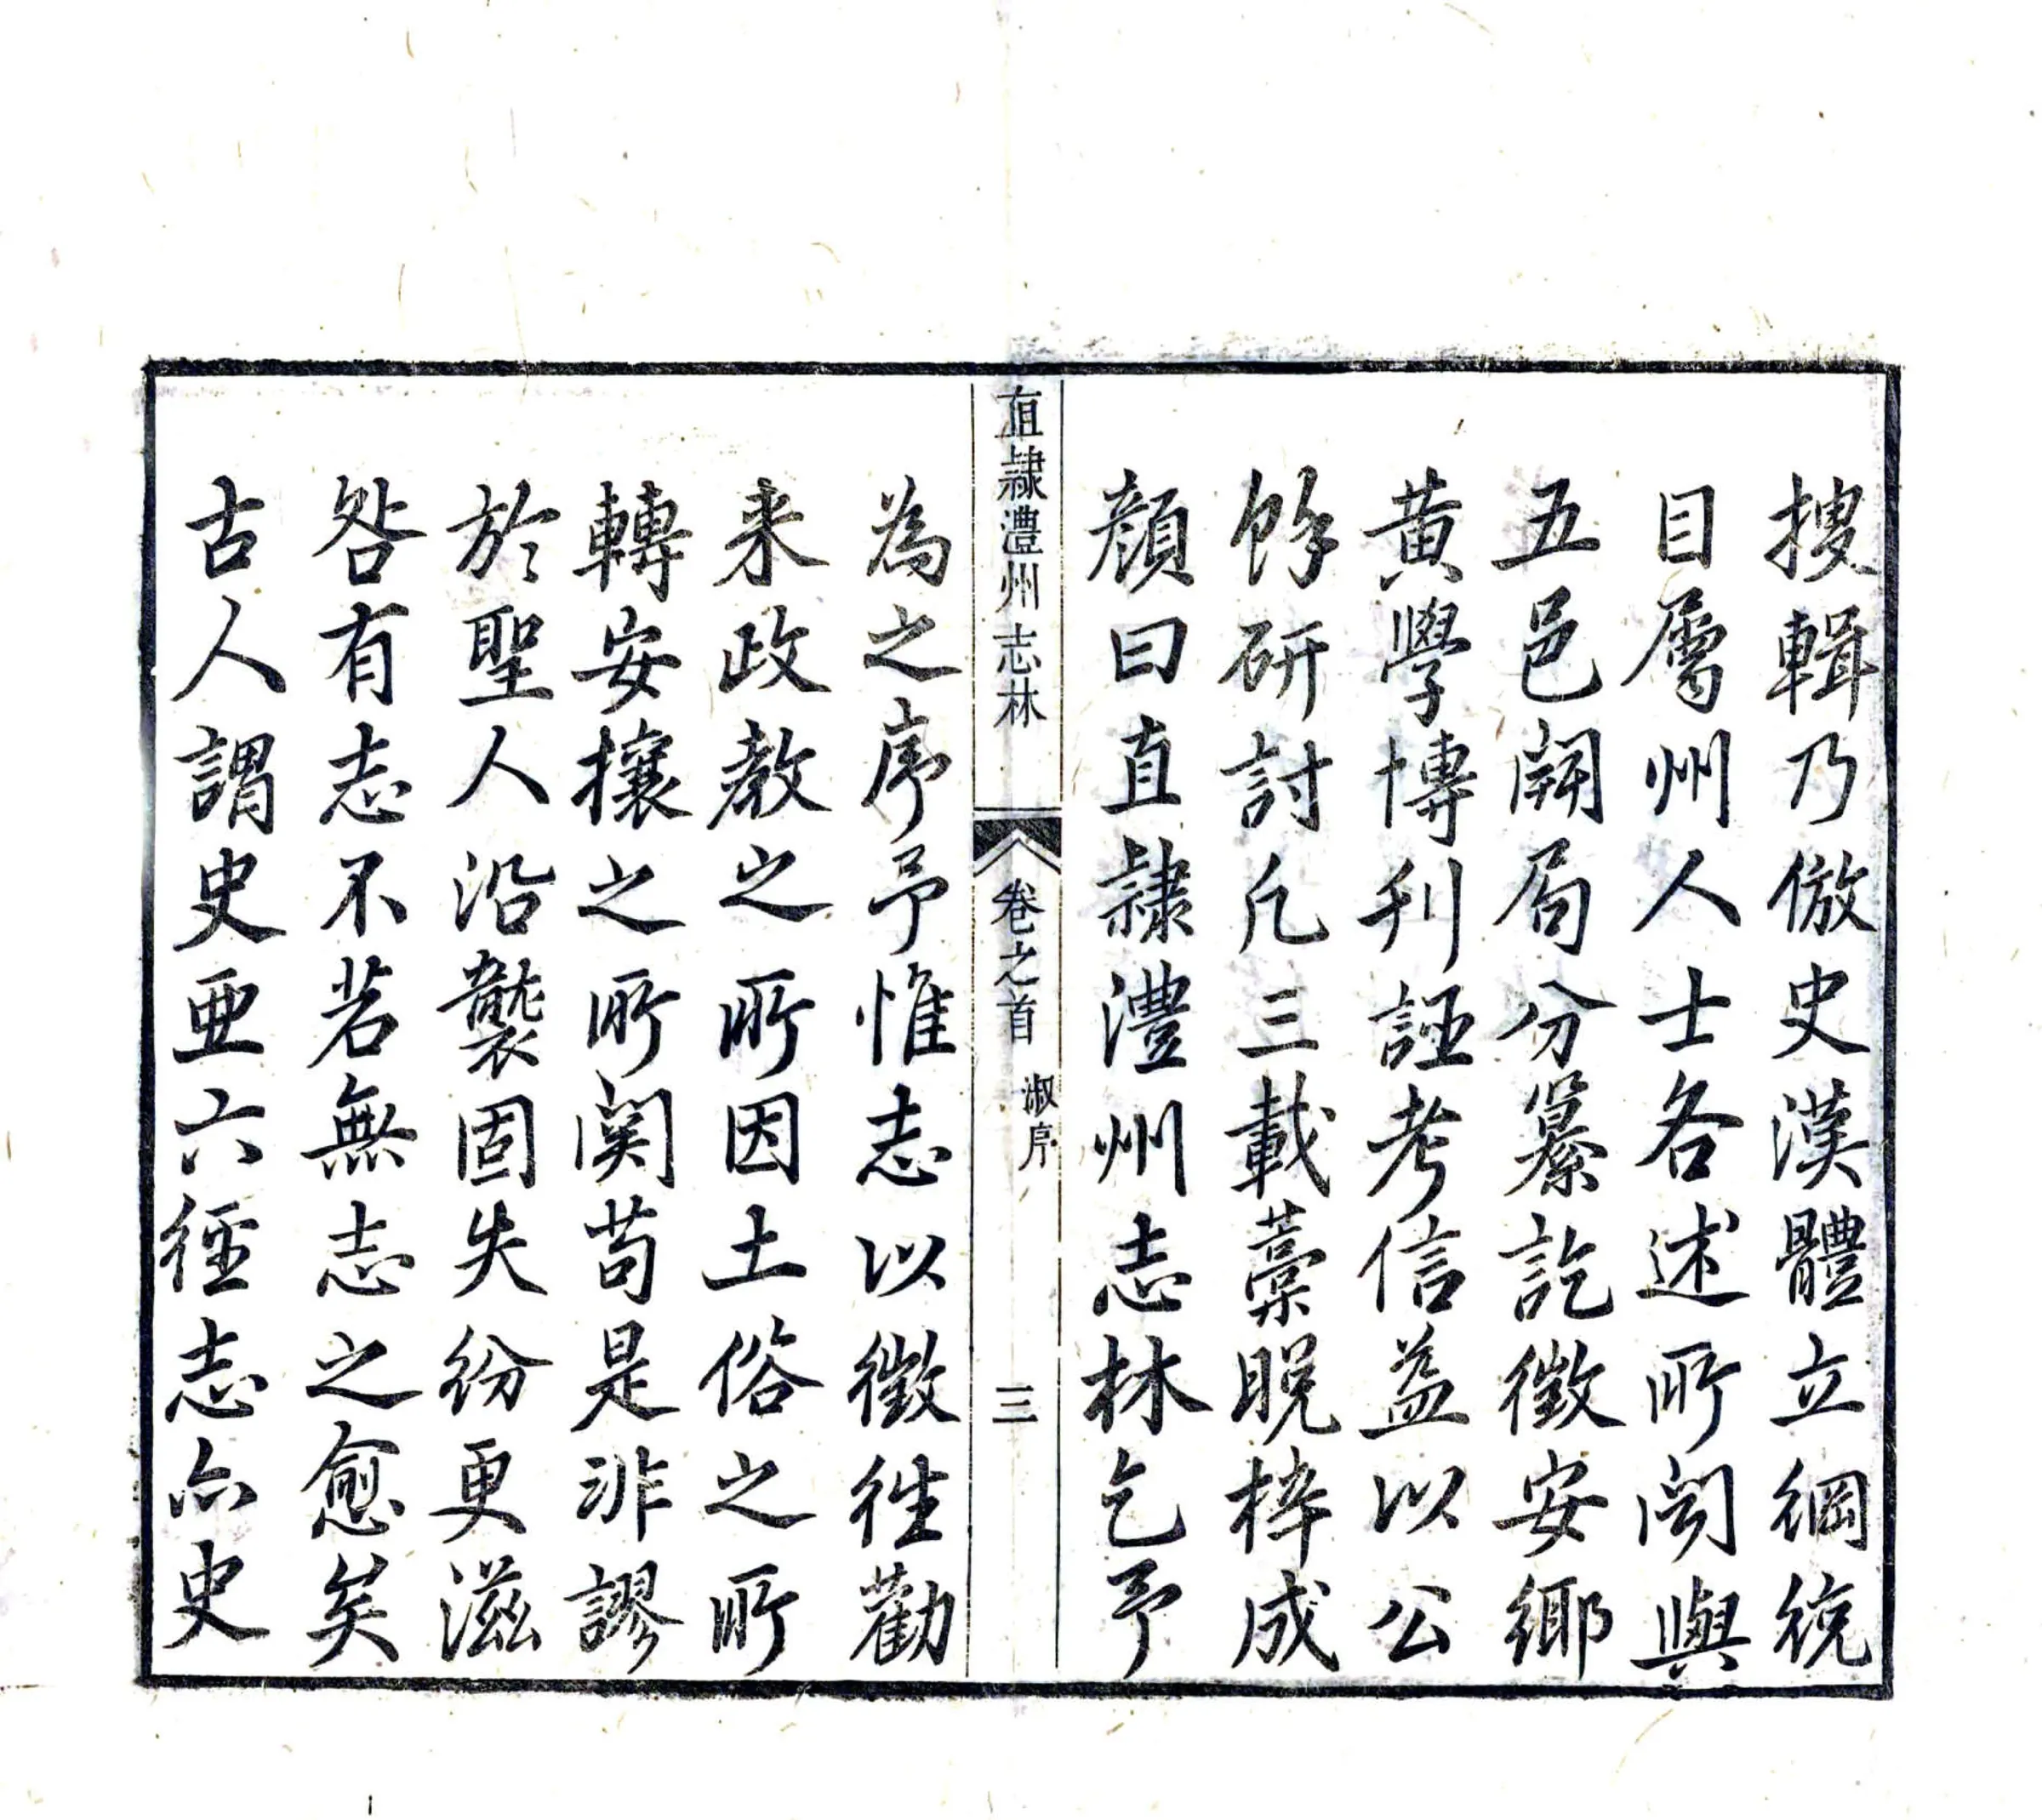 搜輯乃倣史漢體立綱統
目屬州人士各述所聞與
五邑開局分纂訖徵安鄉
黃學博刊誣考信益以公
餘研討凡三載藁脫梓成
顏曰直隸澧州志林乞予
直隸澧州志林 卷之首 淑序 三
為之序予惟志以徵往勸
來政教之所因土俗之所
轉安攘之所関苟是非謬
於聖人沿襲固失紛更滋
咎有志不若無志之愈矣
古人謂史亜六經志亦史